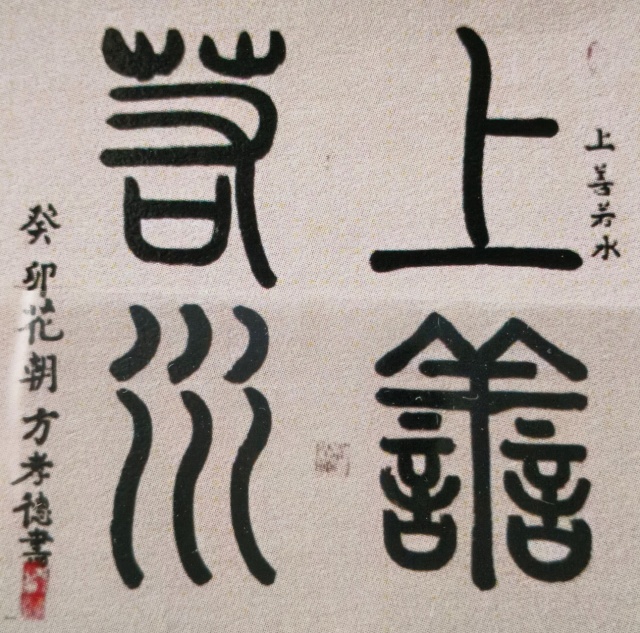 上善若水
上善
若水
癸卯花朝方孝德書